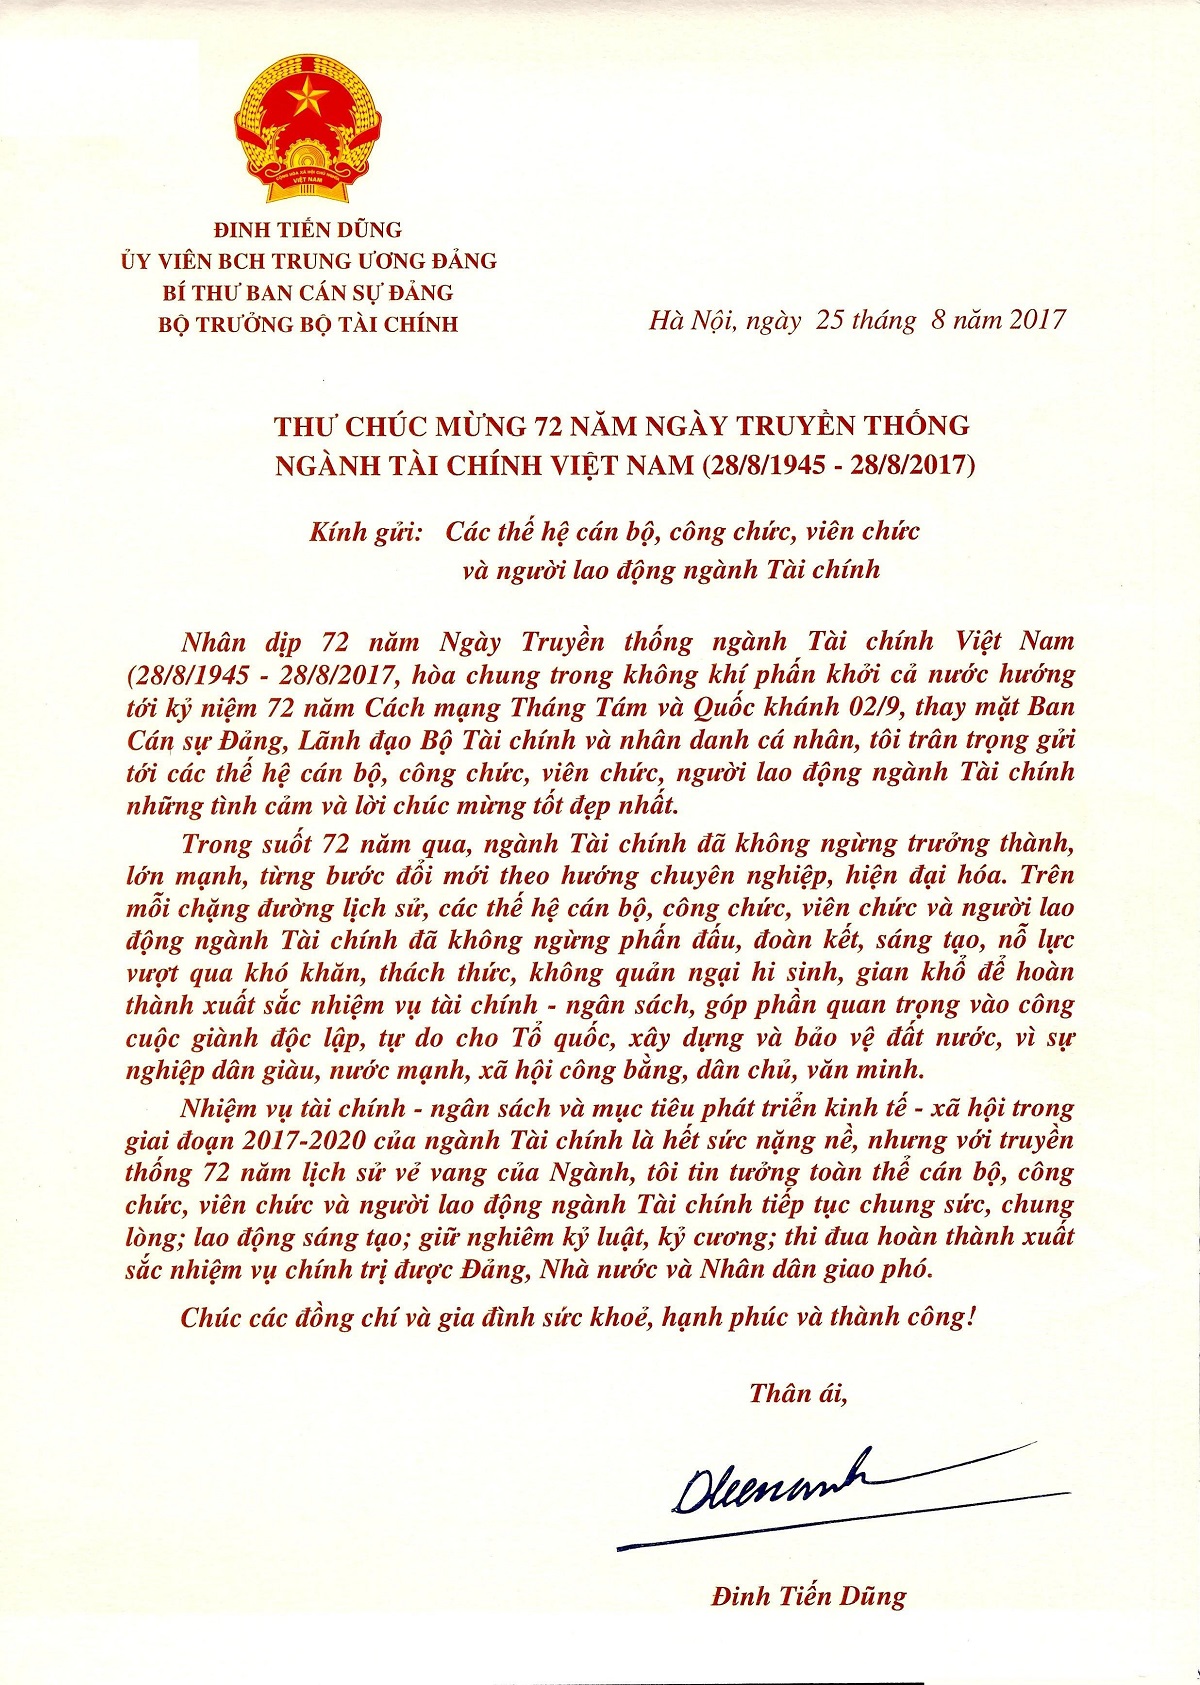 CỘNG HÒA XÃ HỘI CHỦ NGHĨA
VIỆT NAM
ĐINH TIẾN DŨNG
ỦY VIÊN BCH TRUNG ƯƠNG ĐẢNG
BÍ THƯ BAN CÁN SỰ ĐẢNG
BỘ TRƯỞNG BỘ TÀI CHÍNH
Hà Nội, ngày 25 tháng 8 năm 2017
THƯ CHÚC MỪNG 72 NĂM NGÀY TRUYỀN THỐNG
NGÀNH TÀI CHÍNH VIỆT NAM (28/8/1945 - 28/8/2017)
Kính gửi: Các thế hệ cán bộ, công chức, viên chức
và người lao động ngành Tài chính
Nhân dịp 72 năm Ngày Truyền thống ngành Tài chính Việt Nam
(28/8/1945 - 28/8/2017, hòa chung trong không khí phấn khởi cả nước hướng
tới kỷ niệm 72 năm Cách mạng Tháng Tám và Quốc khánh 02/9, thay mặt Ban
Cán sự Đảng, Lãnh đạo Bộ Tài chính và nhân danh cá nhân, tôi trân trọng gửi
tới các thế hệ cán bộ, công chức, viên chức, người lao động ngành Tài chính
những tình cảm và lời chúc mừng tốt đẹp nhất.
Trong suốt 72 năm qua, ngành Tài chính đã không ngừng trưởng thành,
lớn mạnh, từng bước đổi mới theo hướng chuyên nghiệp, hiện đại hóa. Trên
mỗi chặng đường lịch sử, các thế hệ cán bộ, công chức, viên chức và người lao
động ngành Tài chính đã không ngừng phấn đấu, đoàn kết, sáng tạo, nỗ lực
vượt qua khó khăn, thách thức, không quản ngại hi sinh, gian khổ để hoàn
thành xuất sắc nhiệm vụ tài chính - ngân sách, góp phần quan trọng vào công
cuộc giành độc lập, tự do cho Tổ quốc, xây dựng và bảo vệ đất nước, vì sự
nghiệp dân giàu, nước mạnh, xã hội công bằng, dân chủ, văn minh.
Nhiệm vụ tài chính - ngân sách và mục tiêu phát triển kinh tế - xã hội trong
giai đoạn 2017-2020 của ngành Tài chính là hết sức nặng nề, nhưng với truyền
thống 72 năm lịch sử vẻ vang của Ngành, tôi tin tưởng toàn thể cán bộ, công
chức, viên chức và người lao động ngành Tài chính tiếp tục chung sức, chung
lòng; lao động sáng tạo; giữ nghiêm kỷ luật, kỷ cương; thi đua hoàn thành xuất
sắc nhiệm vụ chính trị được Đảng, Nhà nước và Nhân dân giao phó.
Chúc các đồng chí và gia đình sức khoẻ, hạnh phúc và thành công!
Thân ái,
Đinh Tiến Dũng